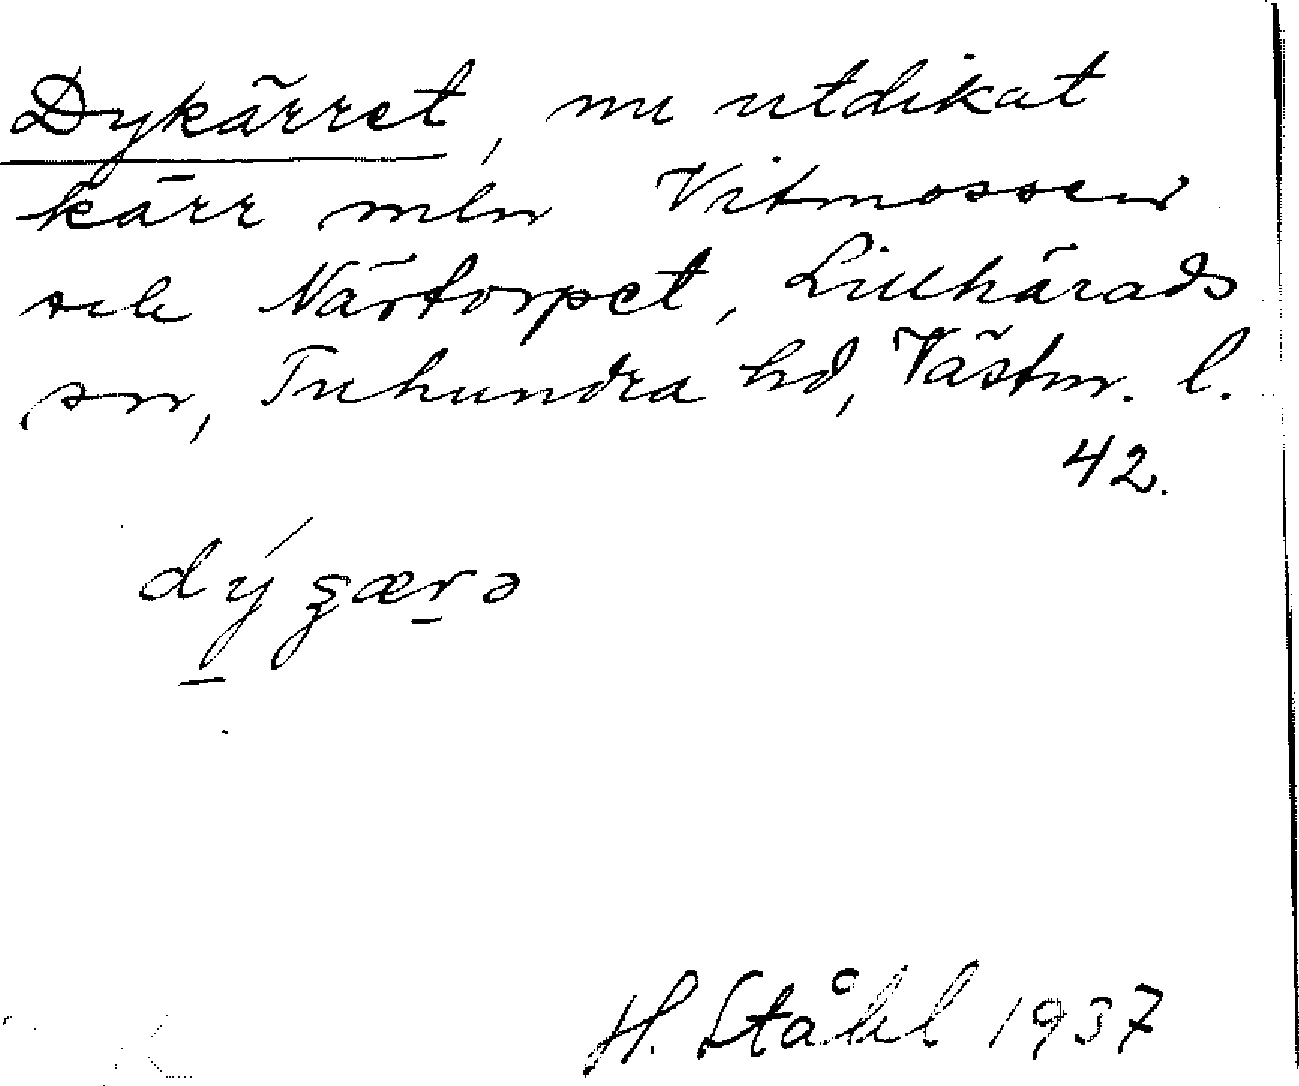 Dykärret, nu utdikat
kärr mln Vitmossen
och Närtorpet, Lillhärads
sn, Tuhundra hd, Västm. l.
42.
dý gærə
H. Ståhl 1937